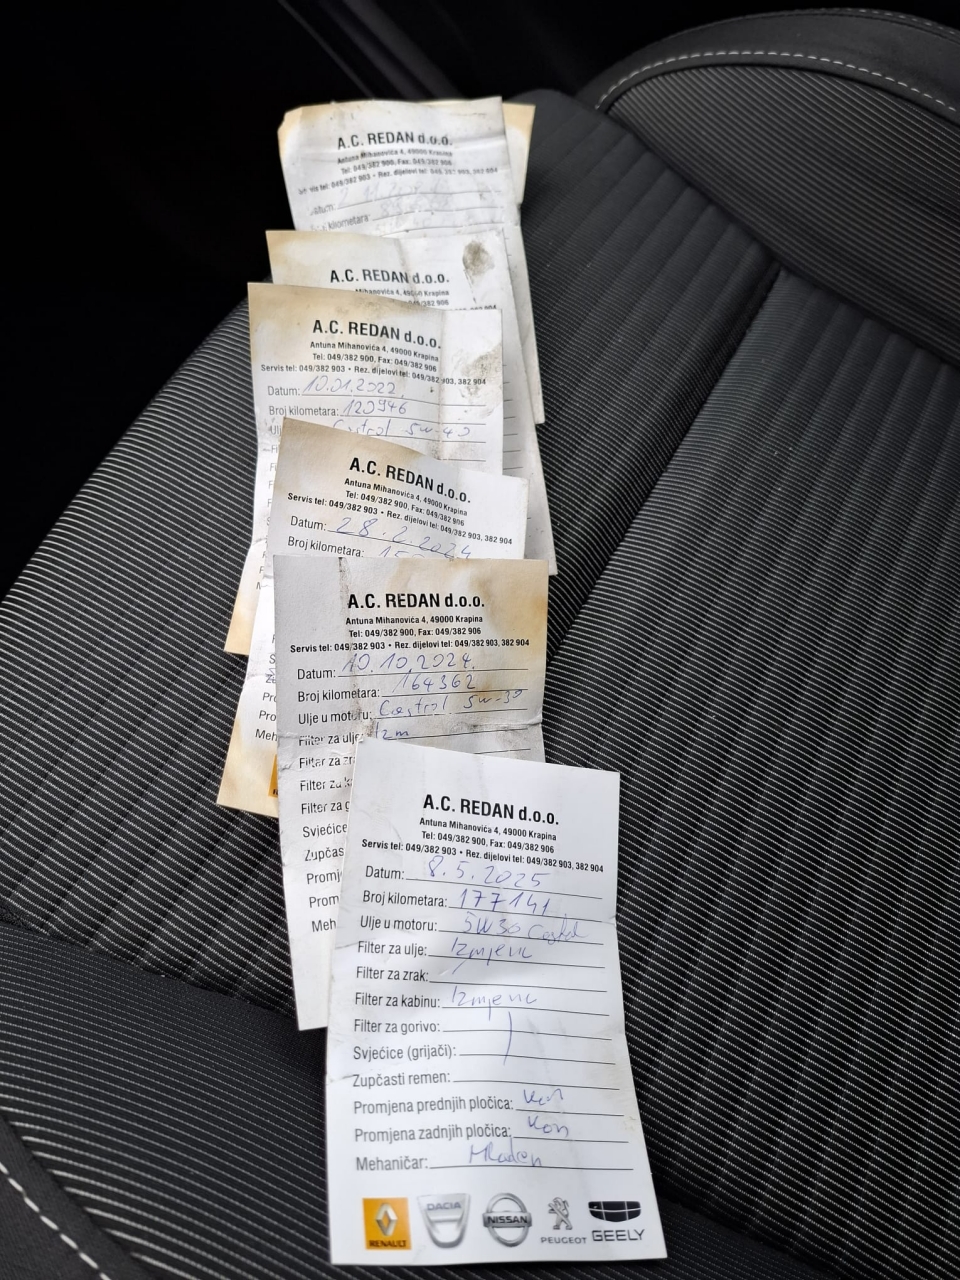 A.C. REDAN d.o.o.
Antuna Mihanovića 4, 49000 Krapina
Tel: 049/382 900, Fax: 049/382 906
Servis tel: 049/382 903 • Rez. dijelovi tel: 049/382 903, 382 904
Datum:
kilometara:
A.C. REDAN d.o.o.
Mihanovića 4, 49000 Krapina
A.C. REDAN d.o.o.
Antuna Mihanovića 4, 49000 Krapina
Tel: 049/382 900, Fax: 049/382 906
Servis tel: 049/382 903 • Rez. dijelovi tel: 049/382 903, 382 904
Datum: 10.01.2022.
Broj kilometara: 120946
Castrol 5w-40
A.C. REDAN d.o.o.
Antuna Mihanovića 4, 49000 Krapina
Tel: 049/382 900, Fax: 049/382 906
Servis tel: 049/382 903 • Rez. dijelovi tel: 049/382 903, 382 904
Datum: 28.2.2024
Broj kilometara:
A.C. REDAN d.o.o.
Antuna Mihanovića 4, 49000 Krapina
Tel: 049/382 900, Fax: 049/382 906
Servis tel: 049/382 903 • Rez. dijelovi tel: 049/382 903, 382 904
Datum: 10.10.2024.
Broj kilometara: 164362
Ulje u motoru: Castrol 5w-30
Filter za ulje: Izm
Filter za zr
Filter za k
Filter za g
Svjećice
Zupčas
Promj
Prom
Meh
A.C. REDAN d.o.o.
Antuna Mihanovića 4, 49000 Krapina
Tel: 049/382 900, Fax: 049/382 906
Servis tel: 049/382 903 • Rez. dijelovi tel: 049/382 903, 382 904
Datum: 8.5.2025
Broj kilometara: 177141
Ulje u motoru: 5W30 Castrol
Filter za ulje: Izmjena
Filter za zrak:
Filter za kabinu: Izmjena
Filter za gorivo:
Svjećice (grijači):
Zupčasti remen:
Promjena prednjih pločica: Kon
Promjena zadnjih pločica: Kon
Mehaničar: Mladen
RENAULT DACIA NISSAN PEUGEOT GEELY